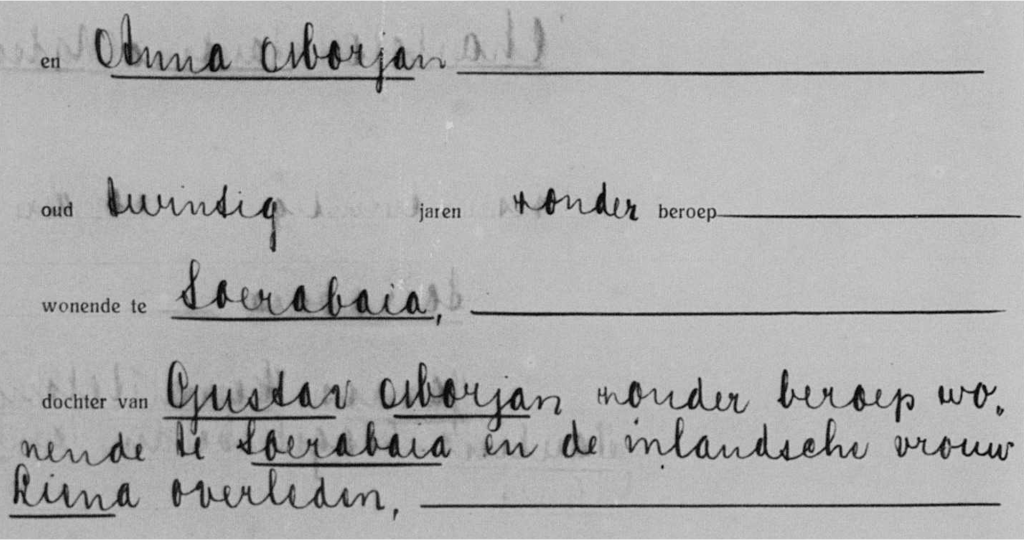 en Anna Arborjan
oud twintig jaren zonder beroep
wonende te Soerabaia,
dochter van Gustav Arborjan zonder beroep wo,
nende te Soerabaia en de inlandsche vrouw
Kiena overleden,